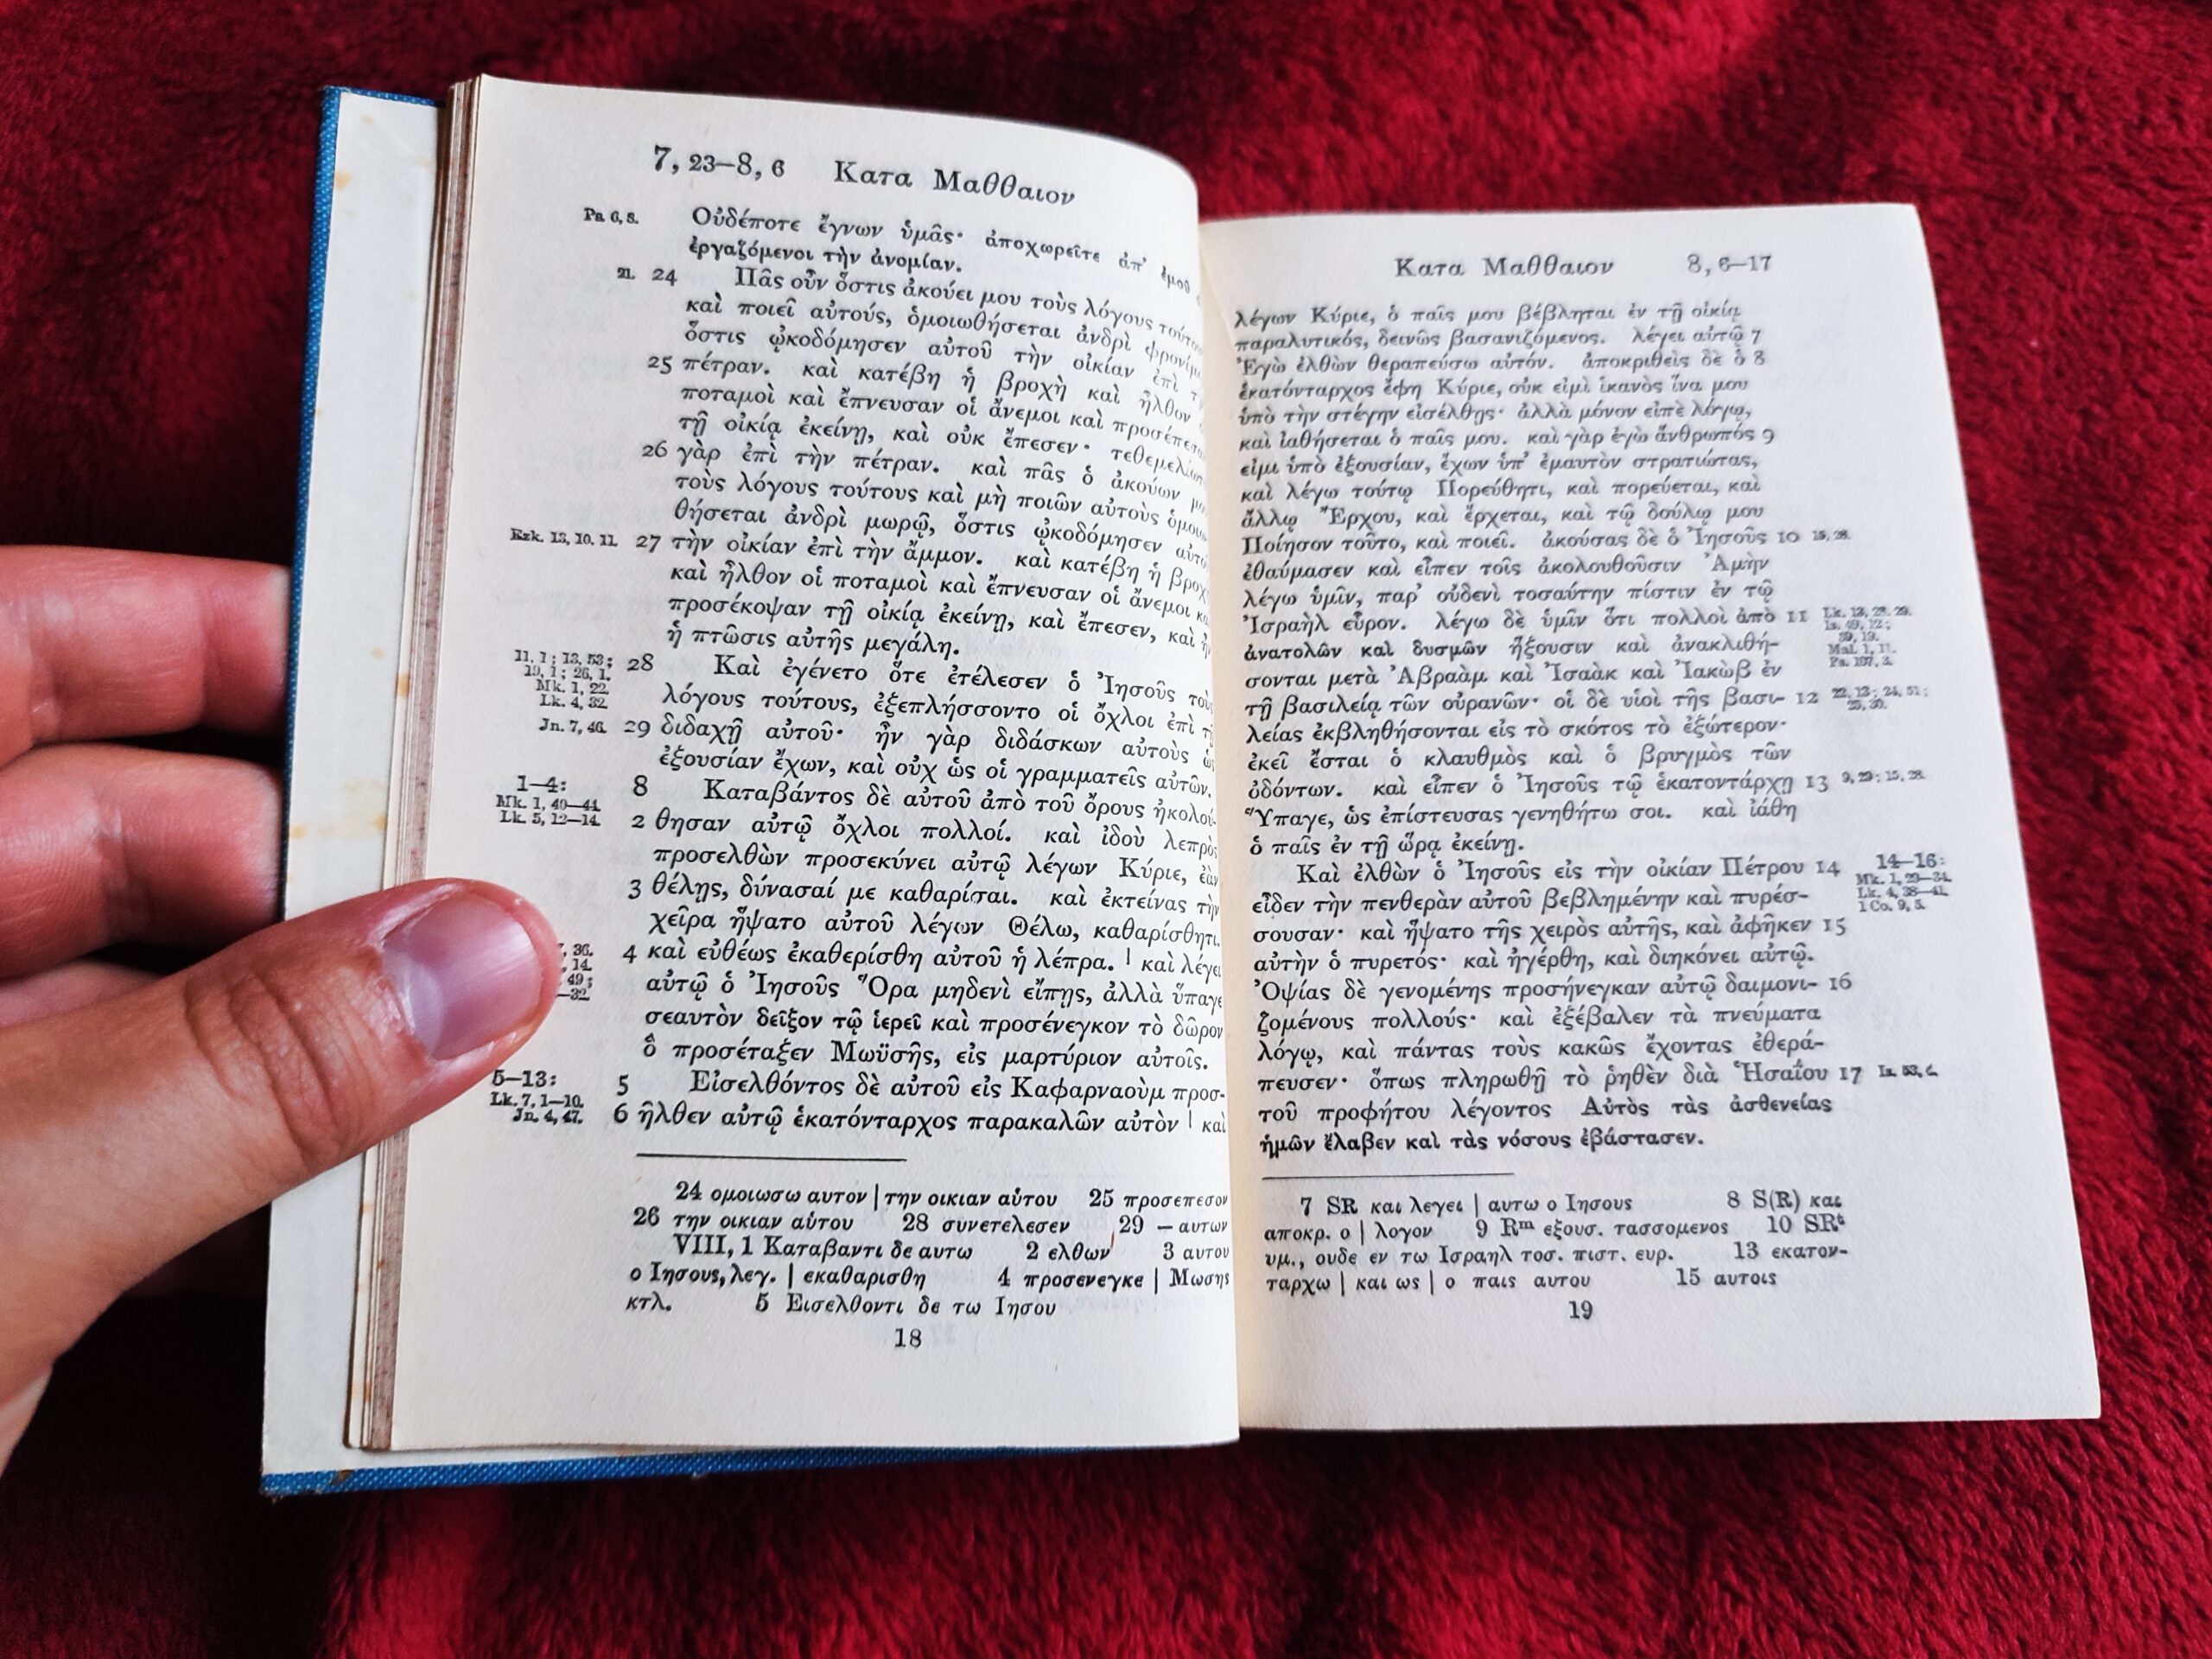 7, 23—8, 6 Κατα Μαθθαιον
Ps. 6, 8. Οὐδέποτε ἔγνων ὑμᾶς· ἀποχωρεῖτε ἀπ’ ἐμοῦ
ἐργαζόμενοι τὴν ἀνομίαν.
21. 24 Πᾶς οὖν ὅστις ἀκούει μου τοὺς λόγους
καὶ ποιεῖ αὐτούς, ὁμοιωθήσεται ἀνδρὶ
ὅστις ᾠκοδόμησεν αὐτοῦ τὴν οἰκίαν ἐπὶ
25 πέτραν. καὶ κατέβη ἡ βροχὴ καὶ ἦλθον
ποταμοὶ καὶ ἔπνευσαν οἱ ἄνεμοι καὶ
τῇ οἰκίᾳ ἐκείνῃ, καὶ οὐκ ἔπεσεν·
26 γὰρ ἐπὶ τὴν πέτραν. καὶ πᾶς ὁ ἀκούων
τοὺς λόγους τούτους καὶ μὴ ποιῶν αὐτοὺς
θήσεται ἀνδρὶ μωρῷ, ὅστις ᾠκοδόμησεν
Ezk. 13, 10. 11. 27 τὴν οἰκίαν ἐπὶ τὴν ἄμμον. καὶ κατέβη ἡ
καὶ ἦλθον οἱ ποταμοὶ καὶ ἔπνευσαν οἱ ἄνεμοι
προσέκοψαν τῇ οἰκίᾳ ἐκείνῃ, καὶ ἔπεσεν, καὶ
ἡ πτῶσις αὐτῆς μεγάλη.
11, 1; 13, 53; 28 Καὶ ἐγένετο ὅτε ἐτέλεσεν ὁ Ἰησοῦς τοὺς
19, 1; 26, 1.
Mk. 1, 22. λόγους τούτους, ἐξεπλήσσοντο οἱ ὄχλοι ἐπὶ
Lk. 4, 32.
Jn. 7, 46. 29 διδαχῇ αὐτοῦ· ἦν γὰρ διδάσκων αὐτοὺς ὡς
ἐξουσίαν ἔχων, καὶ οὐχ ὡς οἱ γραμματεῖς αὐτῶν.
1—4: 8 Καταβάντος δὲ αὐτοῦ ἀπὸ τοῦ ὄρους ἠκολού-
Mk. 1, 40—44.
Lk. 5, 12—14. 2 θησαν αὐτῷ ὄχλοι πολλοί. καὶ ἰδοὺ λεπρὸς
προσελθὼν προσεκύνει αὐτῷ λέγων Κύριε, ἐὰν
3 θέλῃς, δύνασαί με καθαρίσαι. καὶ ἐκτείνας τὴν
χεῖρα ἥψατο αὐτοῦ λέγων Θέλω, καθαρίσθητι.
36. 4 καὶ εὐθέως ἐκαθερίσθη αὐτοῦ ἡ λέπρα. | καὶ λέγει
14.
49; αὐτῷ ὁ Ἰησοῦς Ὅρα μηδενὶ εἴπῃς, ἀλλὰ ὕπαγε
—32.
σεαυτὸν δεῖξον τῷ ἱερεῖ καὶ προσένεγκον τὸ δῶρον
ὃ προσέταξεν Μωϋσῆς, εἰς μαρτύριον αὐτοῖς.
5—13: 5 Εἰσελθόντος δὲ αὐτοῦ εἰς Καφαρναοὺμ προσ-
Lk. 7, 1—10.
Jn. 4, 47. 6 ῆλθεν αὐτῷ ἑκατόνταρχος παρακαλῶν αὐτὸν | καὶ
24 ομοιωσω αυτον | την οικιαν αὑτου 25 προσεπεσον
26 την οικιαν αὑτου 28 συνετελεσεν 29 – αυτων
VIII, 1 Καταβαντι δε αυτω 2 ελθων 3 αυτου
ο Ιησους, λεγ. | εκαθαρισθη 4 προσενεγκε | Μωσης
κτλ. 5 Εισελθοντι δε τω Ιησου
18
Κατα Μαθθαιον 8, 6—17
λέγων Κύριε, ὁ παῖς μου βέβληται ἐν τῇ οἰκίᾳ
παραλυτικός, δεινῶς βασανιζόμενος. λέγει αὐτῷ 7
Ἐγὼ ἐλθὼν θεραπεύσω αὐτόν. ἀποκριθεὶς δὲ ὁ 8
ἑκατόνταρχος ἔφη Κύριε, οὐκ εἰμὶ ἱκανὸς ἵνα μου
ὑπὸ τὴν στέγην εἰσέλθῃς· ἀλλὰ μόνον εἰπὲ λόγῳ,
καὶ ἰαθήσεται ὁ παῖς μου. καὶ γὰρ ἐγὼ ἄνθρωπός 9
εἰμι ὑπὸ ἐξουσίαν, ἔχων ὑπ’ ἐμαυτὸν στρατιώτας,
καὶ λέγω τούτῳ Πορεύθητι, καὶ πορεύεται, καὶ
ἄλλῳ Ἔρχου, καὶ ἔρχεται, καὶ τῷ δούλῳ μου
Ποίησον τοῦτο, καὶ ποιεῖ. ἀκούσας δὲ ὁ Ἰησοῦς 10 15, 28.
ἐθαύμασεν καὶ εἶπεν τοῖς ἀκολουθοῦσιν Ἀμὴν
λέγω ὑμῖν, παρ’ οὐδενὶ τοσαύτην πίστιν ἐν τῷ
Ἰσραὴλ εὗρον. λέγω δὲ ὑμῖν ὅτι πολλοὶ ἀπὸ 11 Lk. 13, 28. 29.
Is. 49, 12;
59, 19.
ἀνατολῶν καὶ δυσμῶν ἥξουσιν καὶ ἀνακλιθή- Mal. 1, 11.
Ps. 107, 3.
σονται μετὰ Ἀβραὰμ καὶ Ἰσαὰκ καὶ Ἰακὼβ ἐν
τῇ βασιλείᾳ τῶν οὐρανῶν· οἱ δὲ υἱοὶ τῆς βασι- 12 22, 13; 24, 51;
25, 30.
λείας ἐκβληθήσονται εἰς τὸ σκότος τὸ ἐξώτερον·
ἐκεῖ ἔσται ὁ κλαυθμὸς καὶ ὁ βρυγμὸς τῶν
ὀδόντων. καὶ εἶπεν ὁ Ἰησοῦς τῷ ἑκατοντάρχῃ 13 9, 29; 15, 28.
Ὕπαγε, ὡς ἐπίστευσας γενηθήτω σοι. καὶ ἰάθη
ὁ παῖς ἐν τῇ ὥρᾳ ἐκείνῃ.
Καὶ ἐλθὼν ὁ Ἰησοῦς εἰς τὴν οἰκίαν Πέτρου 14 14—16:
Mk. 1, 29—34.
εἶδεν τὴν πενθερὰν αὐτοῦ βεβλημένην καὶ πυρέσ- Lk. 4, 38—41.
1 Co. 9, 5.
σουσαν· καὶ ἥψατο τῆς χειρὸς αὐτῆς, καὶ ἀφῆκεν 15
αὐτὴν ὁ πυρετός· καὶ ἠγέρθη, καὶ διηκόνει αὐτῷ.
Ὀψίας δὲ γενομένης προσήνεγκαν αὐτῷ δαιμονι- 16
ζομένους πολλούς· καὶ ἐξέβαλεν τὰ πνεύματα
λόγῳ, καὶ πάντας τοὺς κακῶς ἔχοντας ἐθερά-
πευσεν· ὅπως πληρωθῇ τὸ ῥηθὲν διὰ Ἡσαΐου 17 Is. 53, 4.
τοῦ προφήτου λέγοντος Αὐτὸς τὰς ἀσθενείας
ἡμῶν ἔλαβεν καὶ τὰς νόσους ἐβάστασεν.
7 SR και λεγει | αυτω ο Ιησους 8 S(R) και
αποκρ. ο | λογον 9 Rᵐ εξουσ. τασσομενος 10 SRᵗ
υμ., ουδε εν τω Ισραηλ τοσ. πιστ. ευρ. 13 εκατον-
ταρχω | και ως | ο παις αυτου 15 αυτοις
19